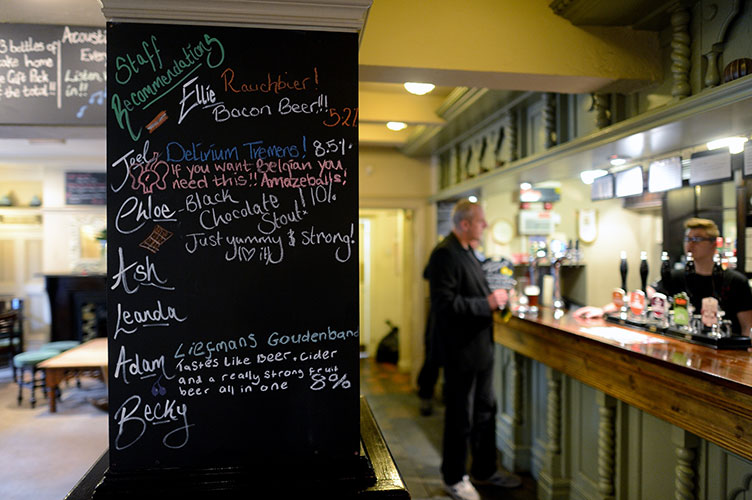 3 bottles of
take home
Gift Pack
the total!!
Acoust
Every
Listen
in!!
Staff
Recommendations
Ellie Rauchbier!
Bacon Beer!!! 5.2%
Joel Delirium Tremens! 8.5%
If you want Belgian you
need this!! Amazeballs!
Chloe -Black
Chocolate
Stout! 10%
Just yummy & strong!
Ash
Leanda
Adam Liefmans Goudenband
Tastes like Beer, Cider
and a really strong fruit
beer all in one 8%
Becky